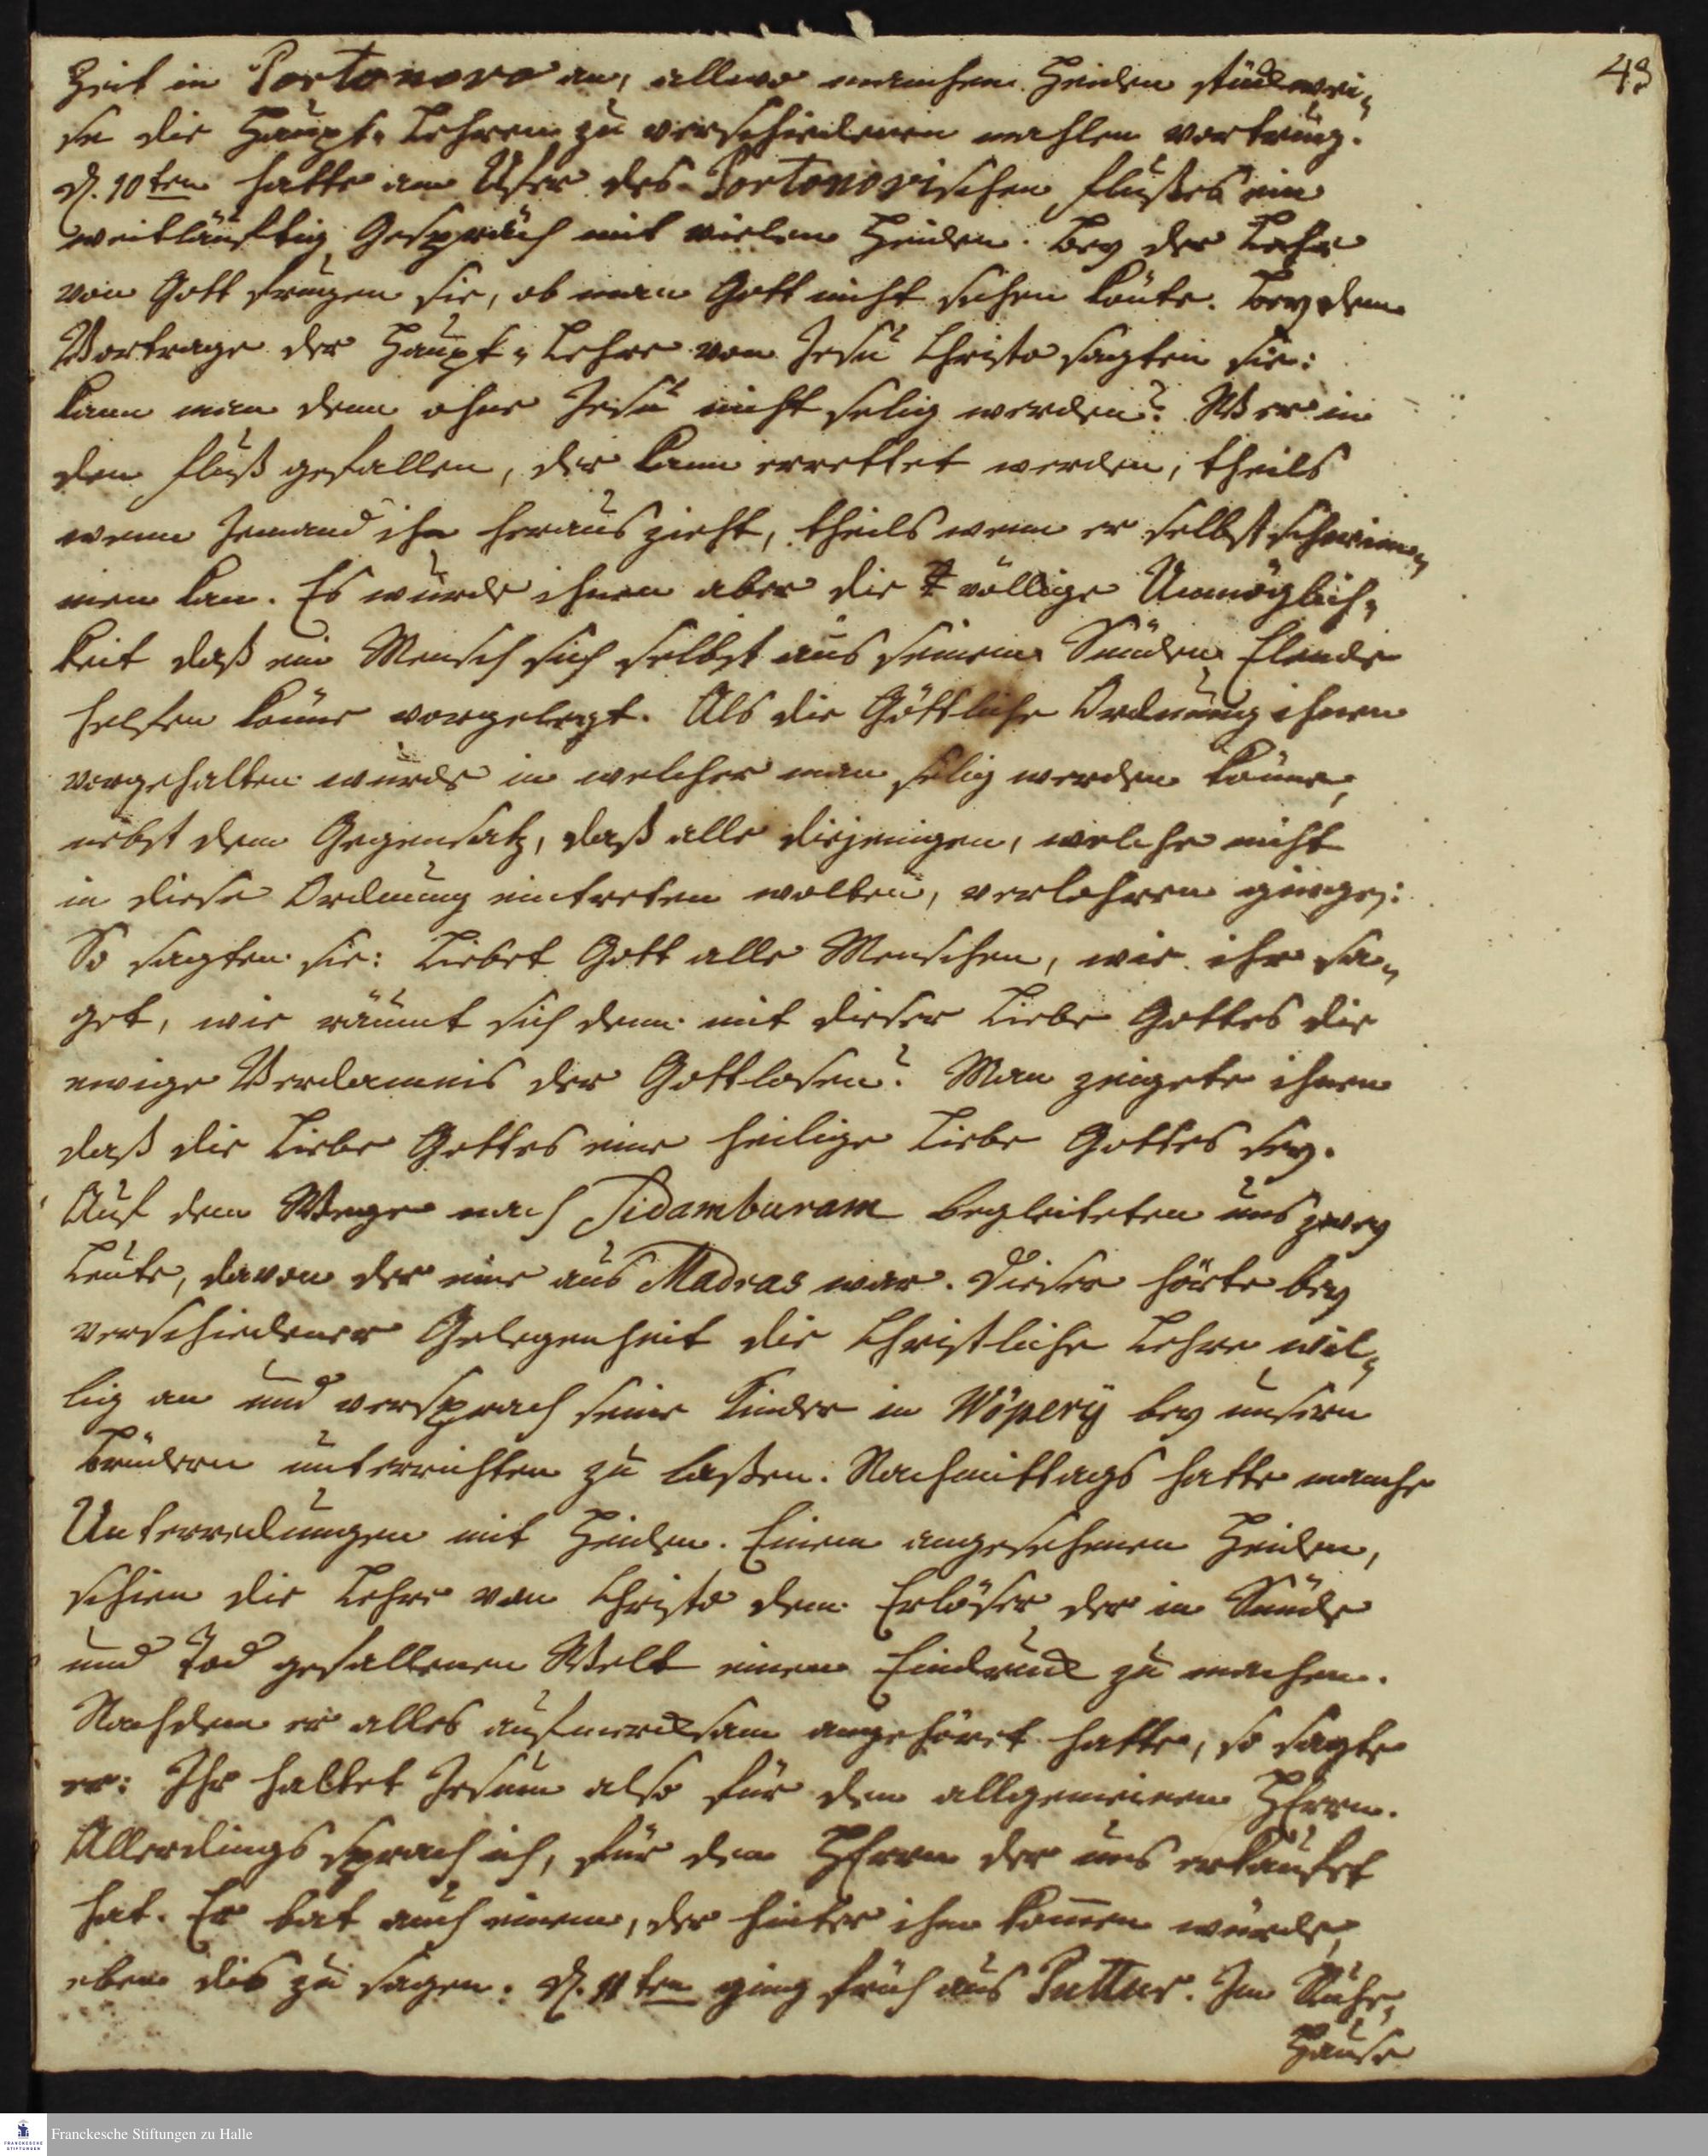 43
Zeit in Portonovo an, allwo manchen Heiden stückwei„
se die Haupt-Lehren zu verschiedenen mahlen vortrug.
D. 10ten hatte am Ufer des Portonovischen Flußes ein
weitläuftig Gespräch mit vielen Heiden. Bey der Lehre
von Gott frugen sie, ob man Gott nicht sehen könte. Bey dem
Vortrage der Haupt-Lehre von Jesu Christo sagten sie:
kann man denn ohne Jesu nicht selig werden? Wer in
den Fluß gefallen, der kann errettet werden, theils
wenn Jemand ihn heraus zieht, theils wenn er selbst schwim„
men kan. Es wurde ihnen aber die völlige Unmöglich„
keit daß ein Mensch sich selbst aus seinem Sünden Elende
helfen könne vorgelegt. Als die Göttliche Ordnung ihnen
vorgehalten wurde in welcher man selig werden könne,
nebst dem Gegensatz, daß alle diejenigen, welche nicht
in diese Ordnung eintreten wolten, verlohren gingen:
So sagten sie: Liebet Gott alle Menschen, wie ihr sa„
get, wie räumt sich denn mit dieser Liebe Gottes die
ewige Verdamnis der Gottlosen? Man zeigete ihnen
daß die Liebe Gottes eine heilige Liebe Gottes sey.
Auf dem Wege nach Sidambaram begleiteten uns zwey
Leute, davon der eine aus Madras war. Dieser hörte bey
verschiedener Gelegenheit die Christliche Lehre wil„
lig an und versprach seine Kinder in Wöpery bey unsern
Brüdern unterrichten zu laßen. Nachmittags hatte manche
Unterredungen mit Heiden. Einem angesehenen Heiden,
schien die Lehre von Christo dem Erlöser der in Sünde
und Tod gefallenen Welt einen Eindruck zu machen.
Nachdem er alles aufmercksam angehöret hatte, so sagte
er: Ihr haltet Jesum also für den allgemeinen HErrn.
Allerdings sprach ich, für den HErrn der uns erkaufet
hat. Er bat auch einem, der hinter ihm kommen würde,
eben dis zu sagen. D. 11ten ging früh aus Puttur. Im Ruhe„
Hause
Franckesche Stiftungen zu Halle